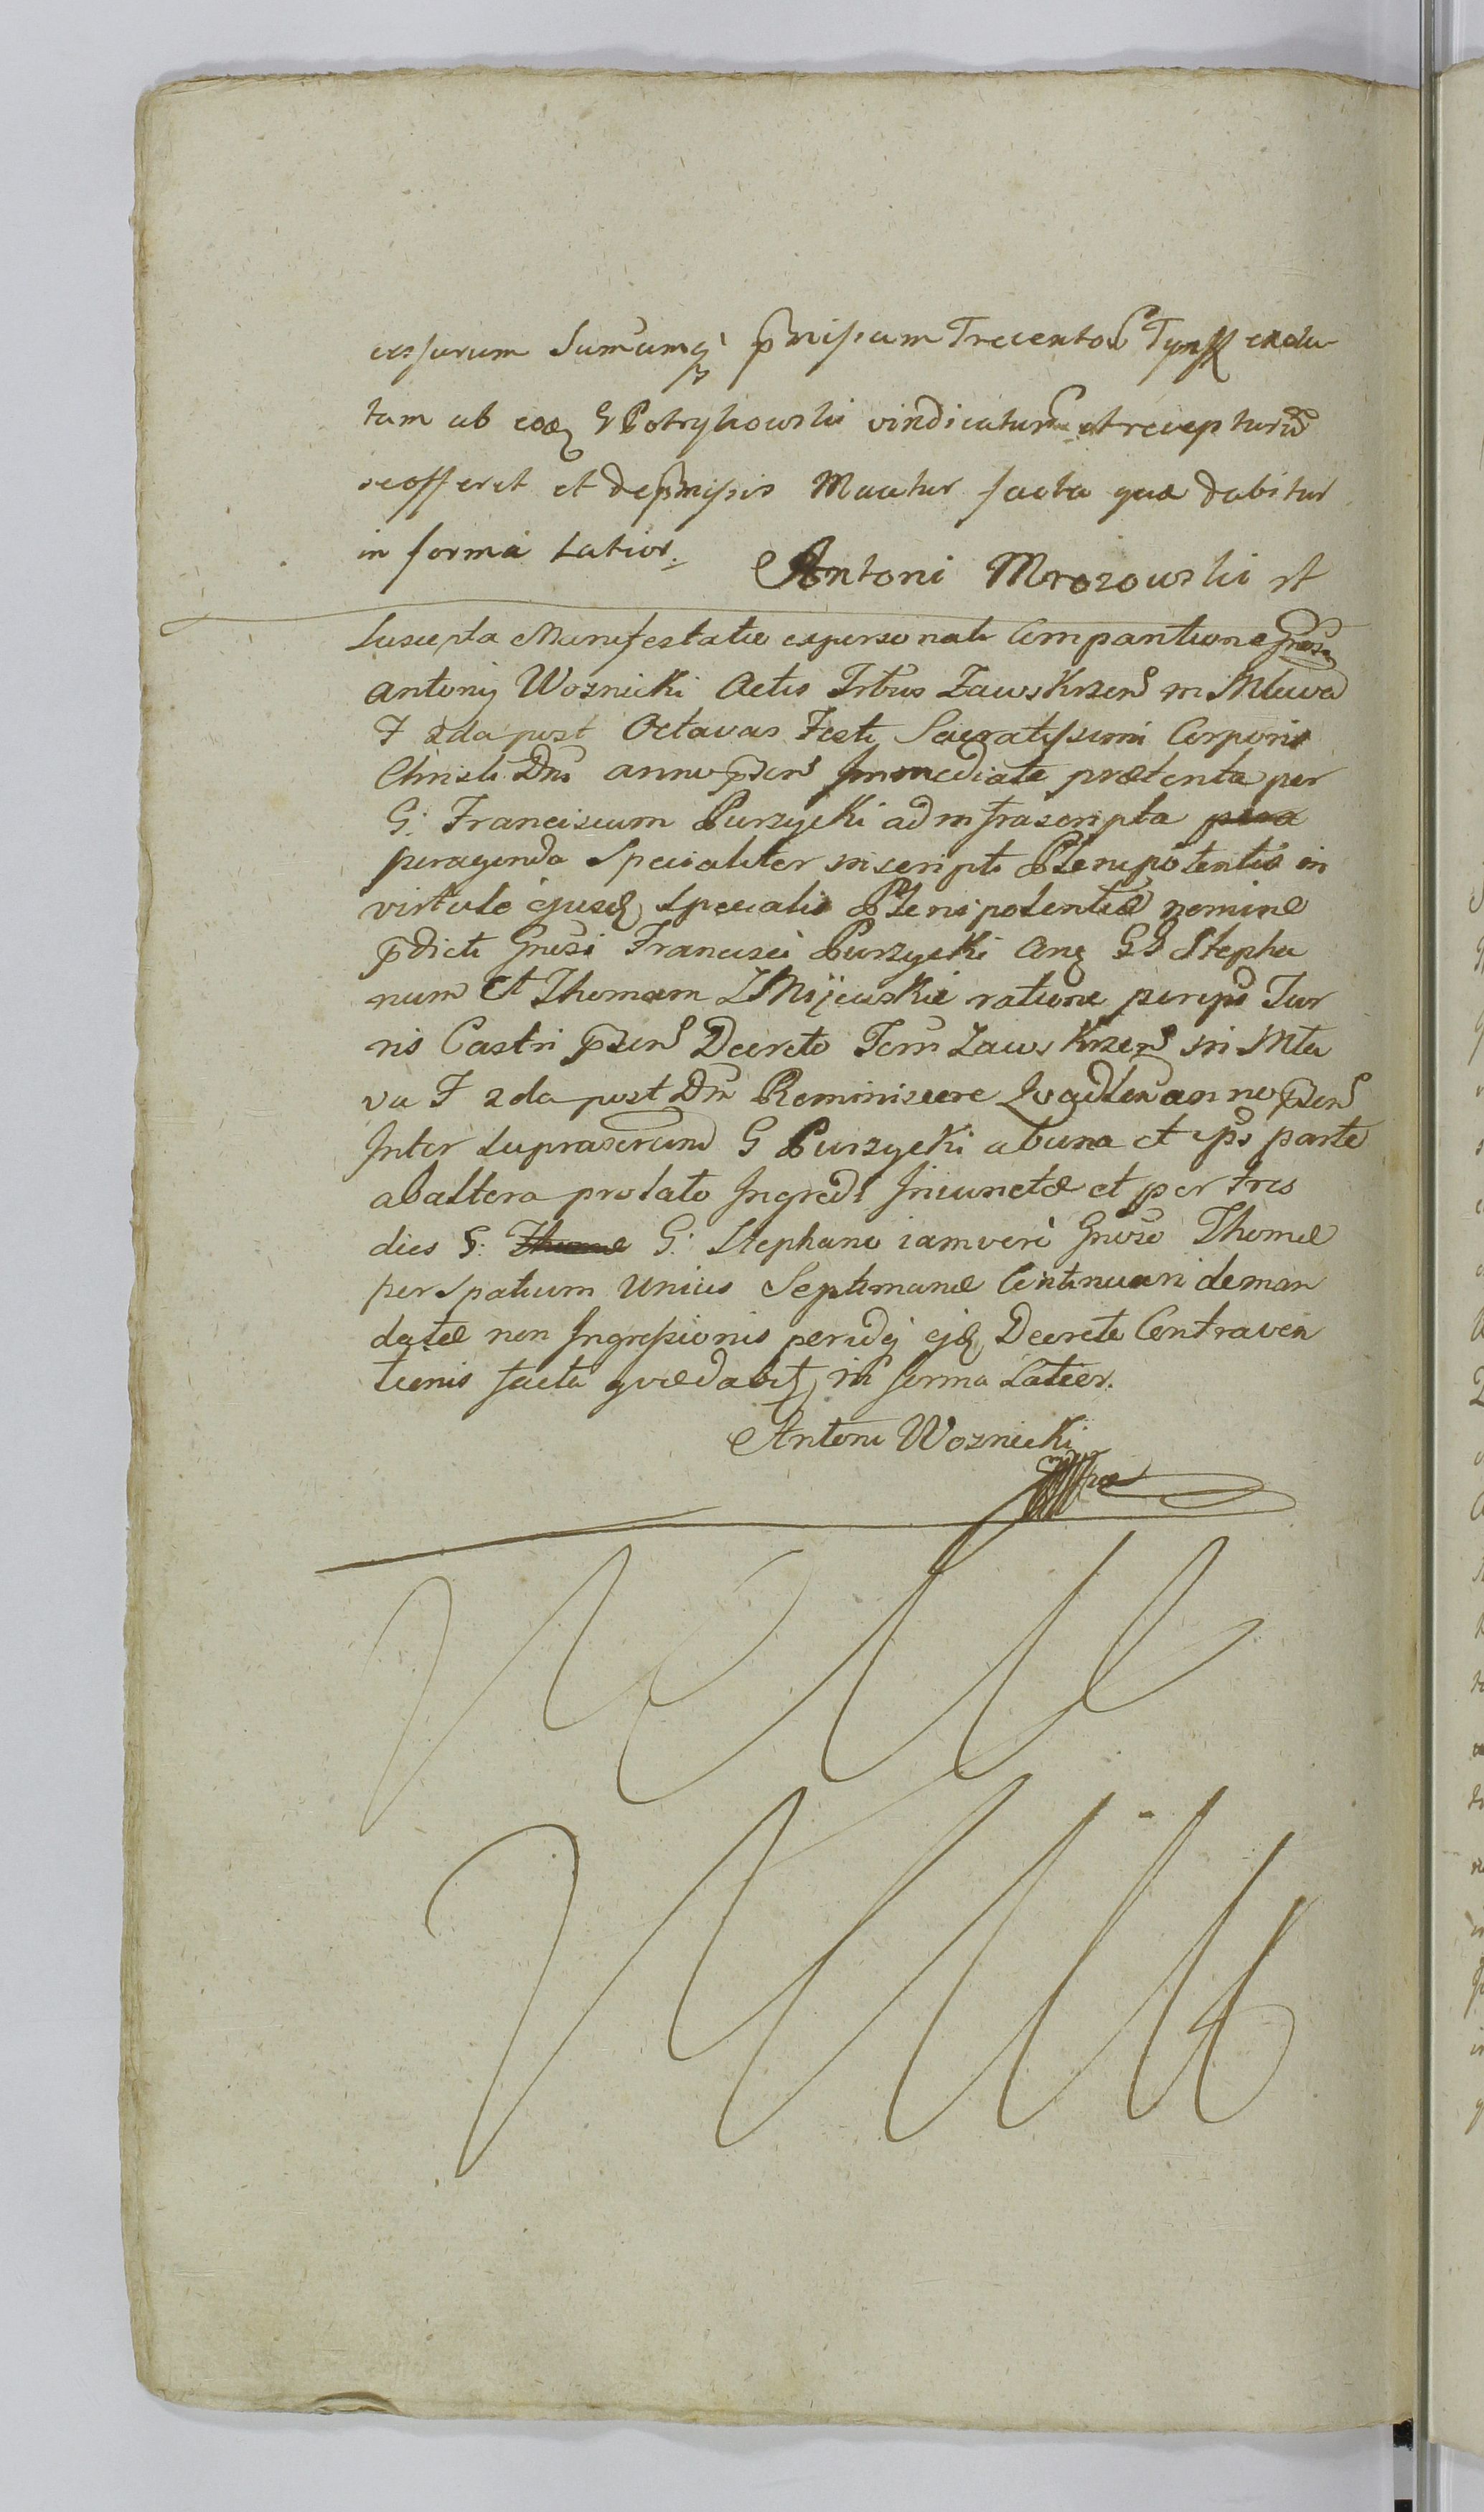 cessurum Sumamq̃ p̃missam Trecentor Tynff exdu
tam ab eod G Potrykowski vindicaturũ et recepturũ
se offeret et de p̃missis Maatur facta quæ dabitur
in forma Latior.
Antoni Mrozowski
Suscepta Manifestatio ex personali Comparitione Gnosi
Antonij Woznicki Actis Trbus Zawskrzens in Mlava
F 2da post Octavas Festi Sacratissimi Corporis
Christi Dni anno p̃sens Immediate prætenta per
G: Franciscum Purzycki ad infrascripta
peragenda Specialiter inscripti Plenipotentis in
virtute ejusd Specialis Plenipotentiæ nomine
p̃dicti Gnosi Francisci Purzycki Cnq GG Stepha
num et Thomam Zmijewskie ratione Tur
ris Castri p̃sens Decreto Terri Zawskrzens in Mla
va F 2da post Dni Reminiscere anno p̃sens
Inter suprascrum G Purzycki ab una et ips parte
ab altera prolato Ingredi Iniunctæ et per tres
dies G: Thomæ G: Stephano iam vero Gnoso Thomæ
per Spatium Unius Septimanæ Continuari deman
datæ non Ingressionis ejd Decreti Contraven
tionis facta quæ dabit in forma Latior.
Antoni Woznicki